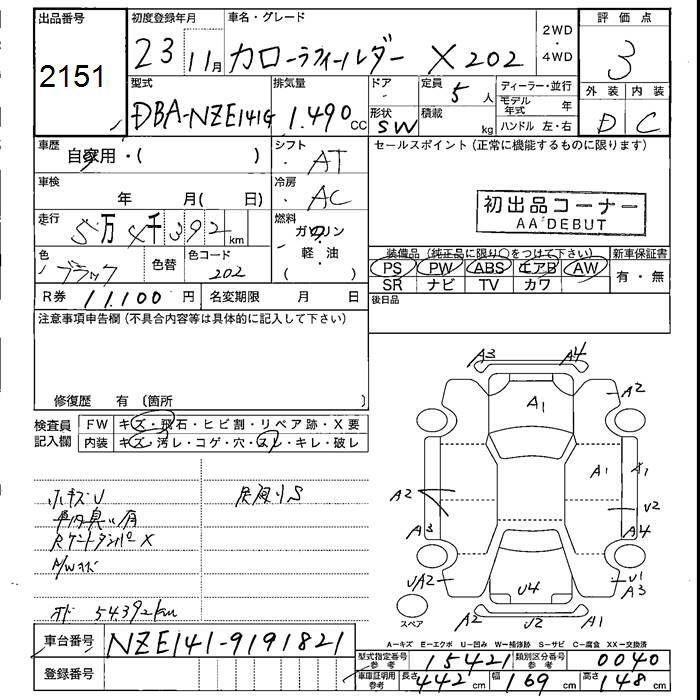 出品番号
2151
初度登録年月
23 11月
車名・グレード
カローラフィールダー X 202
2WD
・
4WD
評価点
3
外装 内装
D C
型式
DBA-NZE141G
排気量
1.490 CC
ドア
形状
SW
定員
5 人
積載
kg
ディーラー・並行
モデル年式 年
ハンドル 左・右
車歴
自家用・( )
シフト
AT
車検
年 月( 日)
冷房
AC
走行
5万4千392km
燃料
ガソリン
軽・油
( )
色
ブラック
色替
色コード
202
R券 11,100 円
名変期限 月 日
セールスポイント (正常に機能するものに限ります)
初出品コーナー
AA DEBUT
装備品 (純正品に限り○をつけて下さい)
PS PW ABS エアB AW
SR ナビ TV カワ
新車保証書
有・無
後日品
注意事項申告欄 (不具合内容等は具体的に記入して下さい)
修復歴 有 〔箇所 〕
検査員
記入欄
FW キズ・飛石・ヒビ割・リペア跡・X要
内装 キズ・汚レ・コゲ・穴・スレ・キレ・破レ
小キズU
RゲートダンパーX
オド 54,392km
A3 A4
A2
A1
A1 A1
A2
U2
A3 A4
UA2 U4 U1
A3
A2 U2 A1
スペア
A-キズ E-エクボ U-凹み W-補修跡 S-サビ C-腐食 XX-交換済
車台番号 NZE141-9191821
登録番号
型式指定番号
参考
15421
類別区分番号
参考
0040
車庫証明用
参考
長さ 442 cm 幅 169 cm 高さ 148 cm